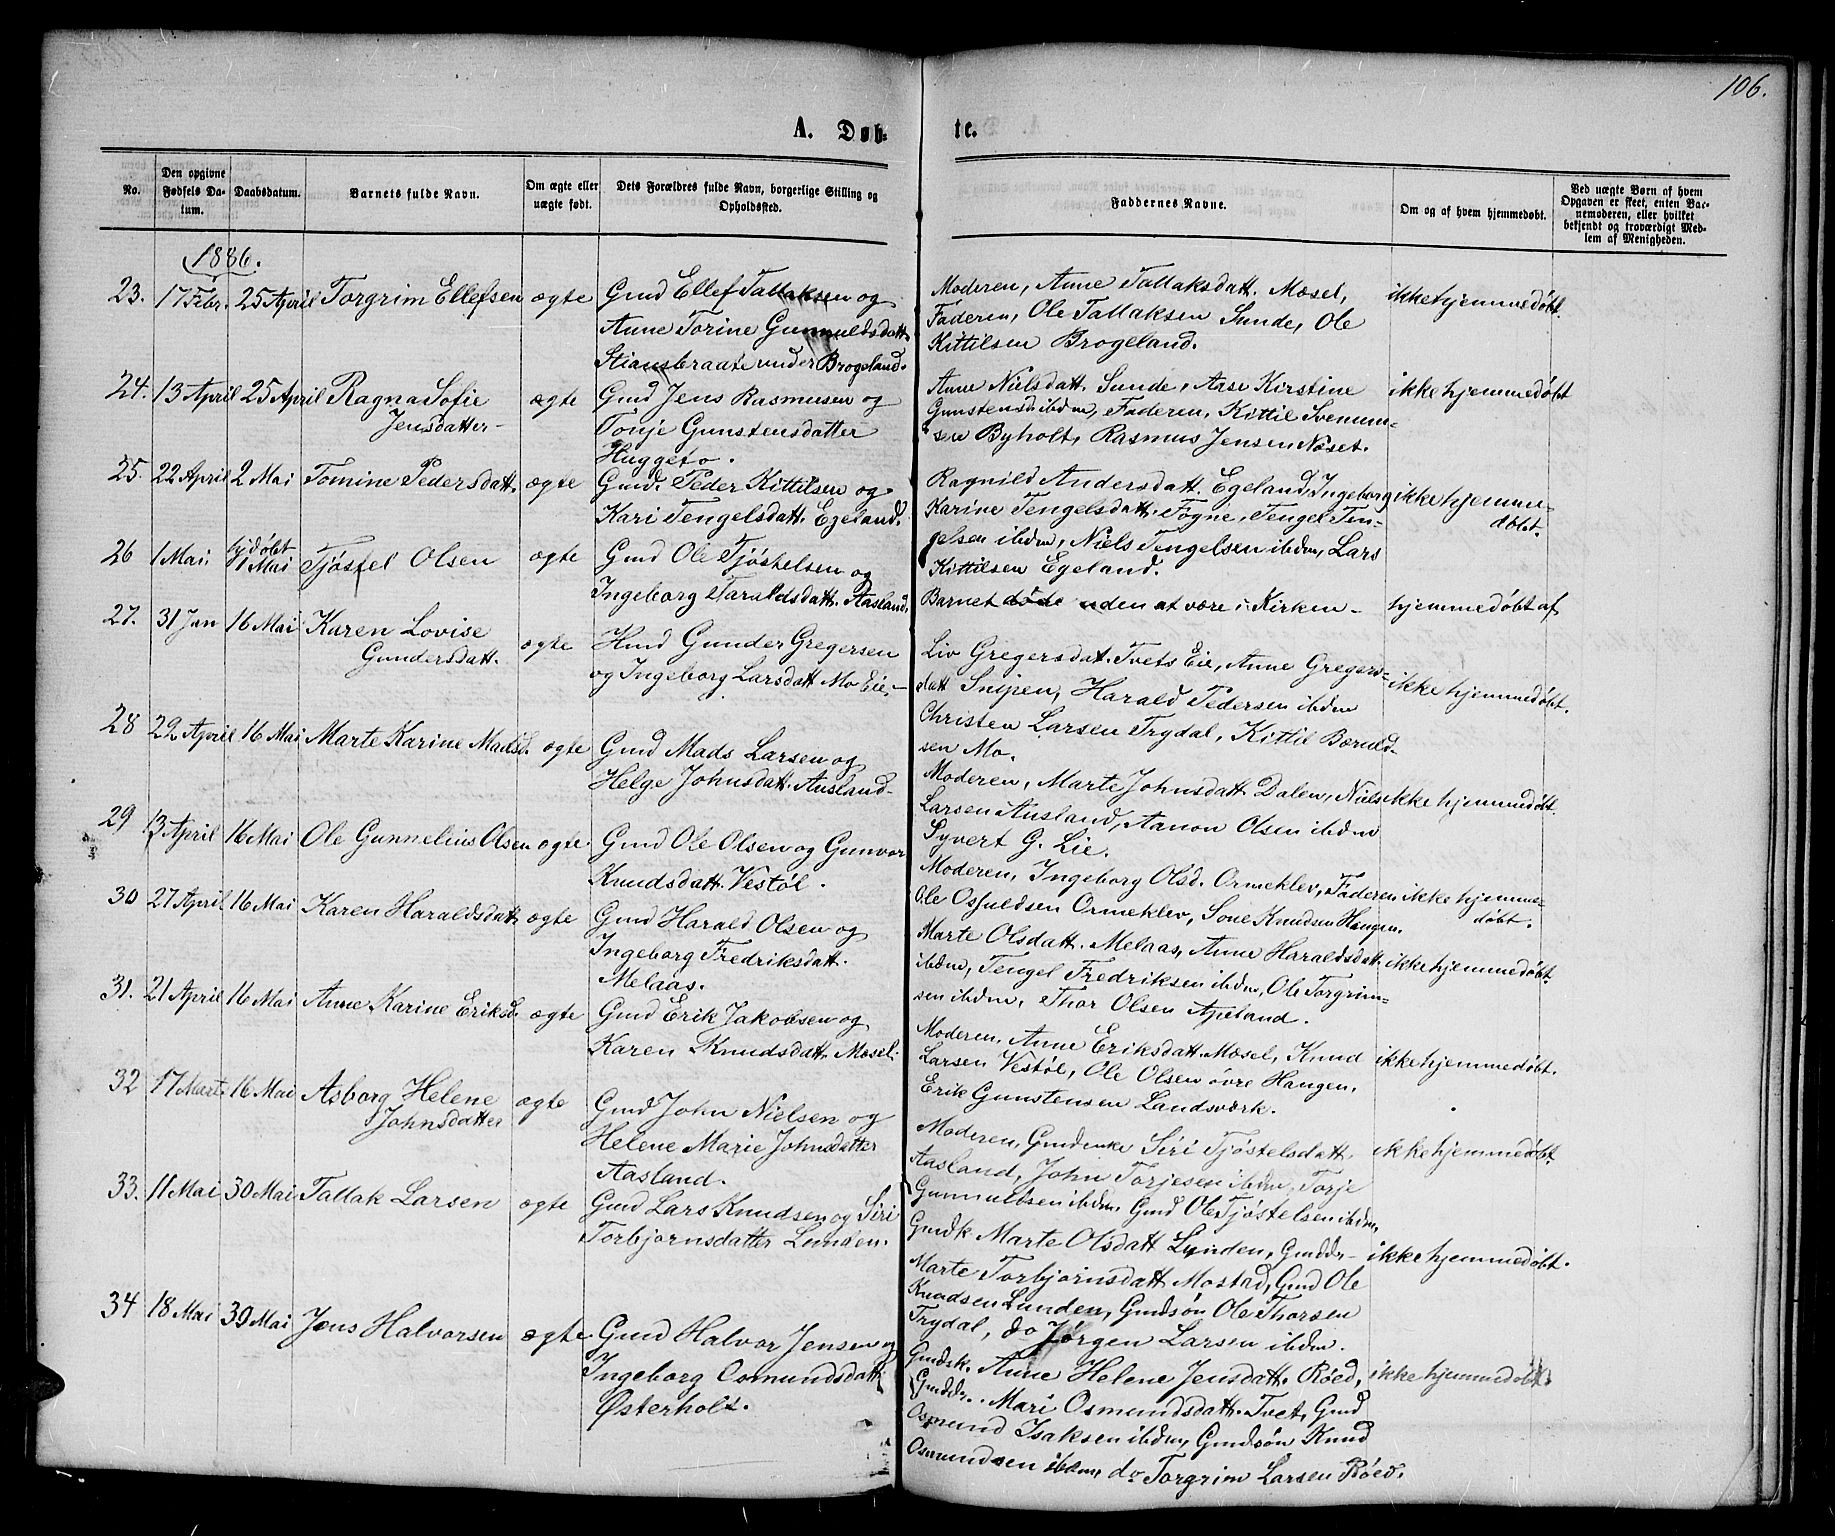 106.
A. Døb-
te.
No.
Den opgivne Fødsels Datum.
Daabsdatum.
Barnets fulde Navn.
Om ægte eller uægte født.
Dets Forældres fulde Navn, borgerlige Stilling og Opholdssted.
Faddernes Navne.
Om og af hvem hjemmedøbt.
Ved uægte Børn af hvem Opgaven er skeet, enten Barnemoderen, eller hvilket bekjendt og troværdigt Medlem af Menigheden.
1886.
23. 17 Febr. 25 April Torgrim Ellefsen ægte Gmd Ellef Tallaksen og
Anne Torine Gunnuldsdatt.
Stiansbraate under Brogeland.
Moderen, Anne Tallaksdatt. Mæsel,
Faderen, Ole Tallaksen Sunde, Ole
Kittilsen Brogeland.
ikke hjemmedøbt
24. 13 April 25 April Ragna Sofie
Jensdatter
ægte Gmd Jens Rasmusen og
Tonje Gunstensdatter
Huggeto.
Anne Nielsdatt. Sunde, Aase Kirstine
Gunstensd ibdm, Faderen, Kittil Svenum-
sen Byholt, Rasmus Jensen Næset.
ikke hjemmedøbt
25. 22 April 2 Mai Tomine Pedersdatt. ægte Gmd. Peder Kittilsen og
Kari Tengelsdatt. Egeland.
Ragnild Andersdatt. Egeland, Ingeborg
Karine Tengelsdatt. Fogne, Tengel Ten-
gelsen ibdm, Niels Tengelsen ibdm, Lars
Kittilsen Egeland.
ikke hjemme-
døbt.
26 1 Mai. hjdøbt
1 Mai
Tjøstel Olsen ægte Gmd Ole Tjøstelsen og
Ingeborg Taraldsdatt. Aasland.
Barnet døde uden at være i Kirken -
hjemmedøbt af
27. 31 Jan 16 Mai Karen Lovise
Gundersdatt.
ægte Hmd Gunder Gregersen
og Ingeborg Larsdatt Mo Eie.
Liv Gregersdat. Tvets Eie, Anne Gregers-
datt Snipen, Harald Pedersen ibdm
Christen Larsen Trydal, Kittil Bæruld-
sen Mo.
ikke hjemmedøbt.
28 22 April 16 Mai Marte Karine Madsd. ægte Gmd Mads Larsen og
Helge Johnsdatt. Ausland
Moderen, Marte Johnsdatt. Dalen, Niels
Larsen Ausland, Aanon Olsen ibdm
Syvert G. Lie.
ikke hjemmedøbt.
29 13 April 16 Mai Ole Gunnelius Olsen ægte Gmd Ole Olsen og Gunvor
Knudsdatt. Vestøl.
Moderen, Ingeborg Olsd. Ormeklev, Faderen
Ole Osfuldsen Ormeklev, Sone Knudsen Haugen.
ikke hjemme-
døbt.
30 27 April 16 Mai Karen Haraldsdatt. ægte Gmd Harald Olsen og
Ingeborg Fredriksdatt.
Melaas.
Marte Olsdatt. Melaas, Anne Haraldsdatt.
ibdm, Tengel Fredriksen ibdm, Ole Torgrim-
sen ibdm, Thor Olsen Apeland.
ikke hjemmedøbt.
31. 21 April 16 Mai Anne Karine Eriksd. ægte Gmd Erik Jakobsen og
Karen Knudsdatt. Mæsel.
Moderen, Anne Eriksdatt. Mæsel, Knud
Larsen Vestøl, Ole Olsen øvre Haugen,
Erik Gunstensen Landsværk.
ikke hjemmedøbt.
32 17 Marts 16 Mai Asborg Helene
Johnsdatter
ægte Gmd John Nielsen og
Helene Marie Johnsdatter
Aasland.
Moderen, Gmdenke Siri Tjøstelsdatt.
Aasland, John Torjesen ibdm, Torje
Gunnulvsen ibdm, Gmd Ole Tjøstelsen ibdm,
ikke hjemmedøbt.
33. 11 Mai 30 Mai Tallak Larsen ægte Gmd Lars Knudsen og Siri
Torbjørnsdatter Lunden.
Gmdk Marte Olsdatt Lunden, Gmddr
Marte Torbjørnsdatt. Mostad, Gmd Ole
Knudsen Lunden, Gmdsøn Ole Thorsen
Trydal, do Jørgen Larsen ibdm.
ikke hjemmedøbt.
34 18 Mai 30 Mai Jens Halvorsen ægte Gmd Halvor Jensen og
Ingeborg Osmundsdatt
Østerholt.
Gmdsk. Anne Helene Jensdatt. Røed,
Gmddr. Mari Osmundsdatt. Tvet, Gmd
Osmund Isaksen ibdm, Gmdsøn Knud
Osmundsen ibdm, do Torgrim Larsen Røed.
ikke hjemmedøbt.